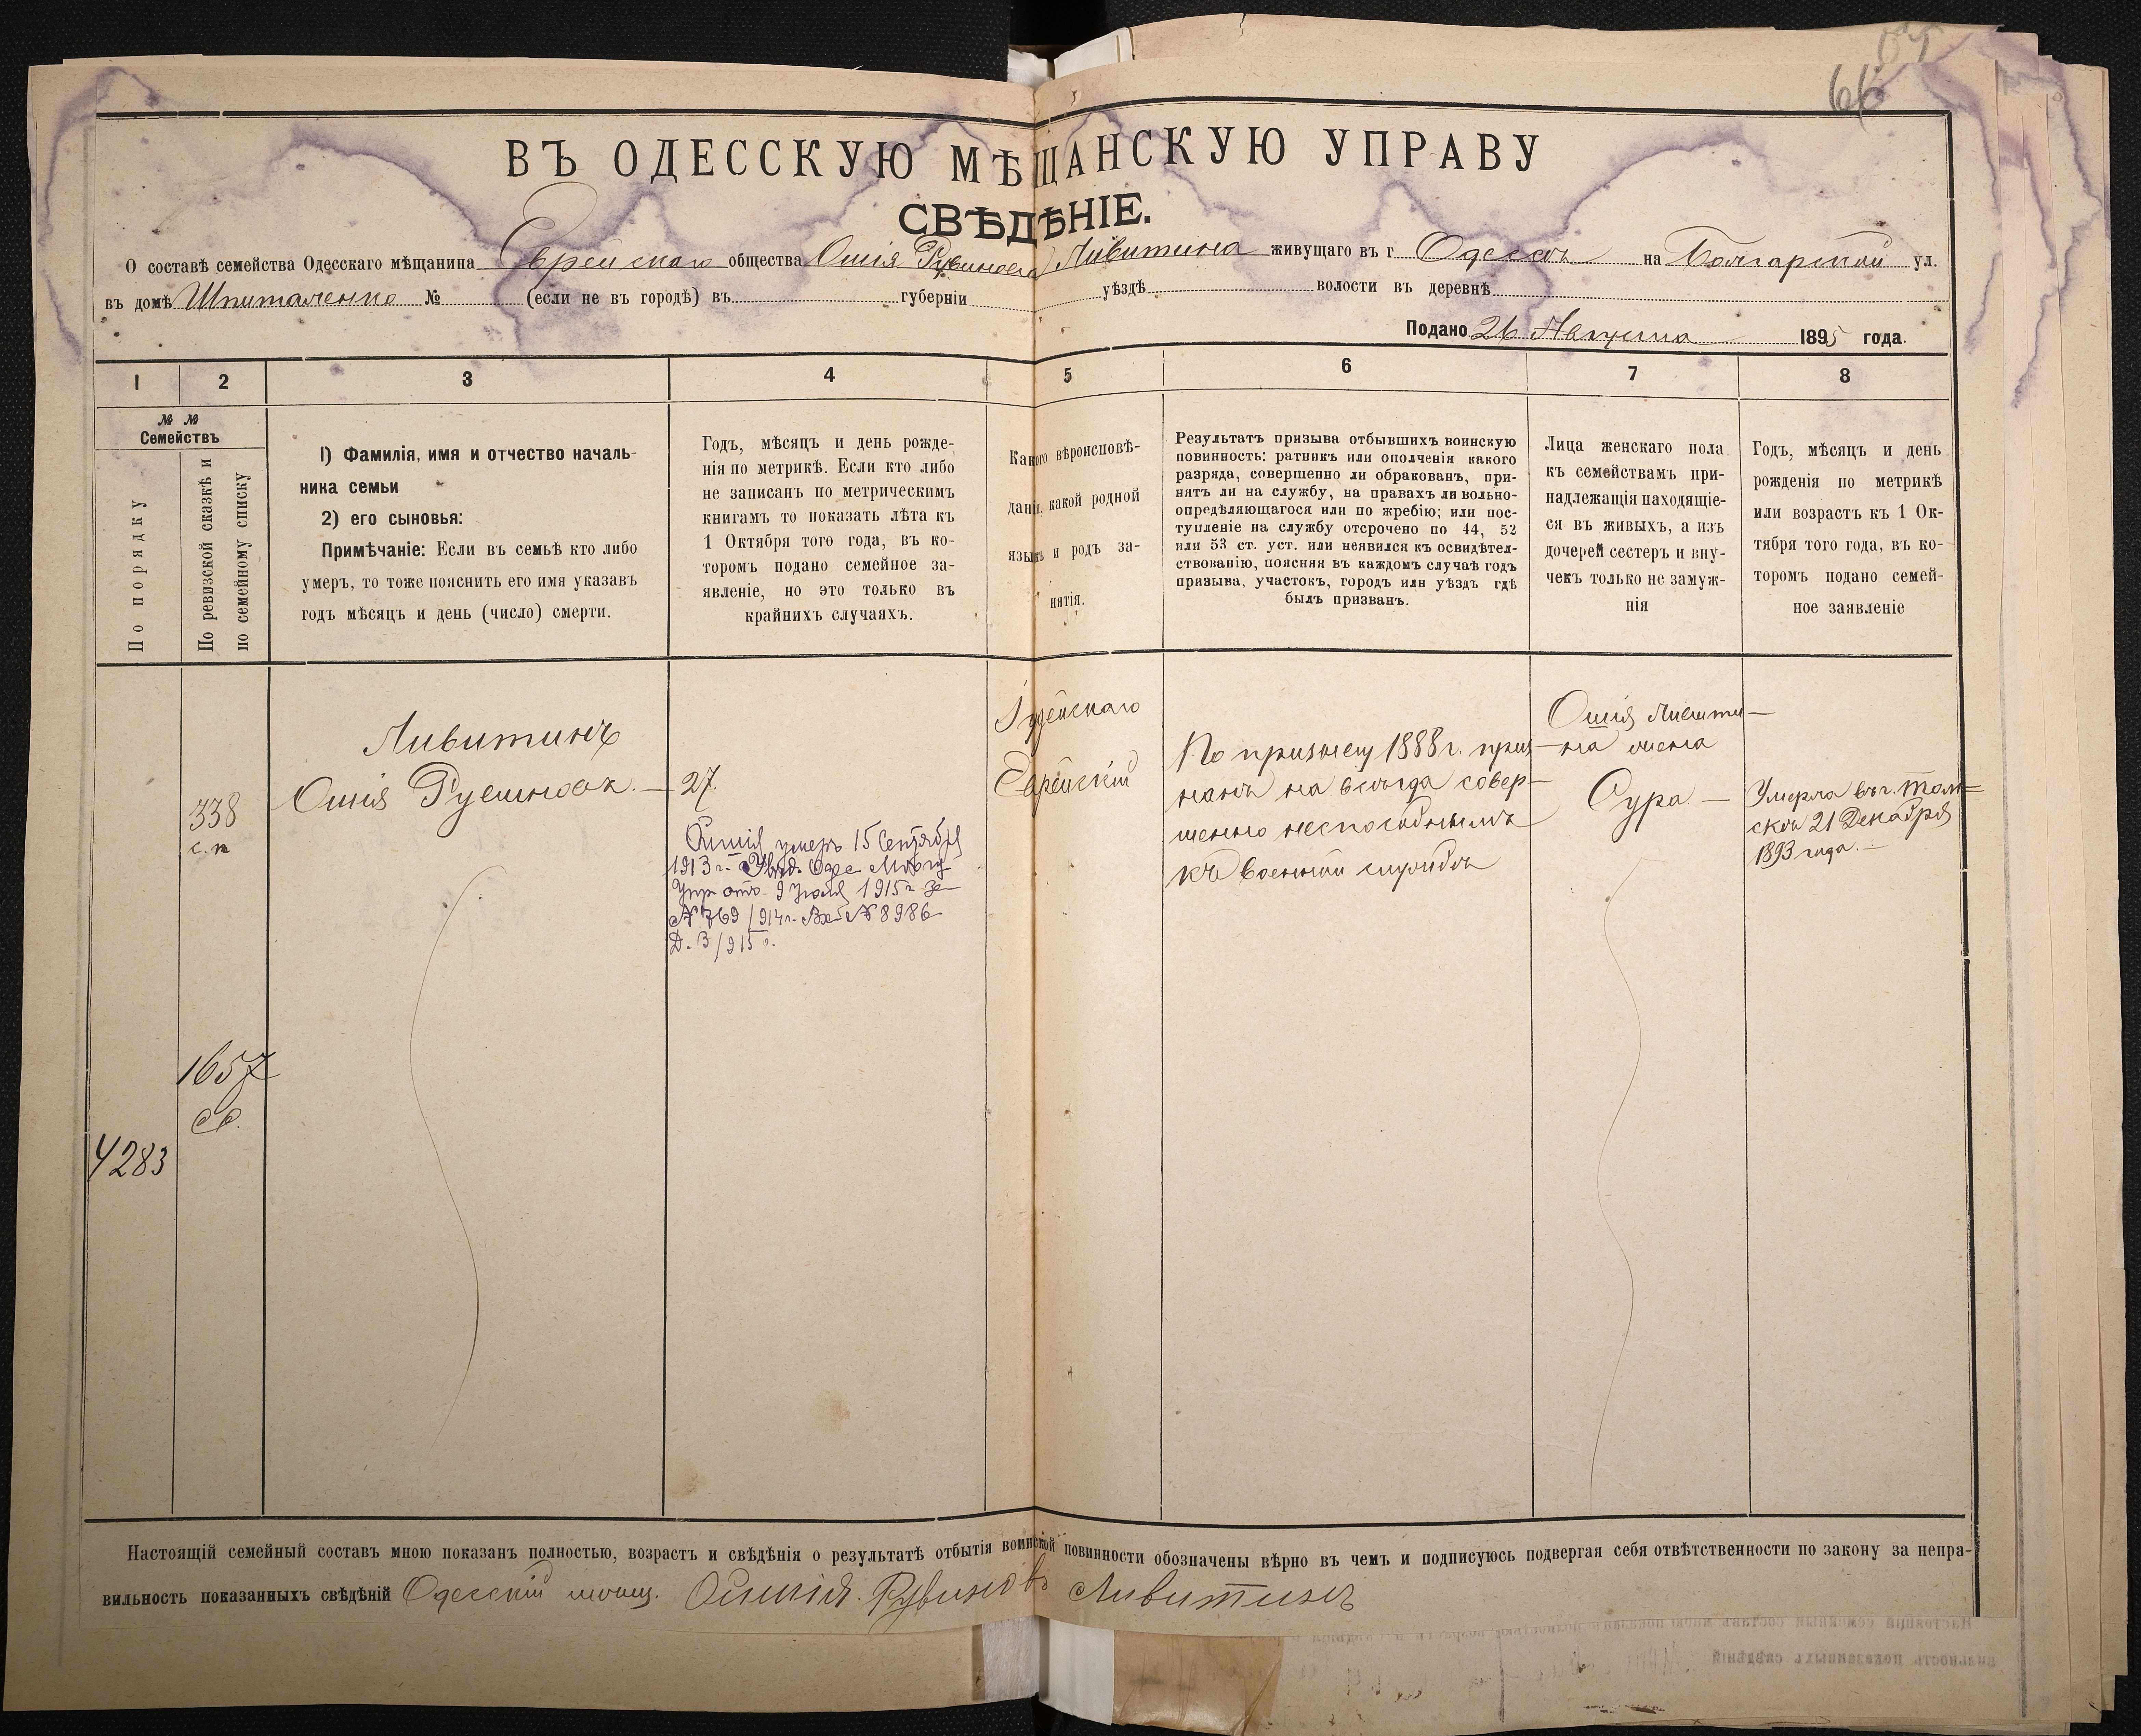 66
ВЪ ОДЕССКУЮ МѢЩАНСКУЮ УПРАВУ
СВѢДѢНІЕ.
О составѣ семейства Одесскаго мѣщанина Еврейскаго общества Ошія Рувинова Ливитина живущаго въ г. Одессѣ на Болгарской ул.
въ домѣ Шпиталенко № (если не въ городѣ) въ губерніи уѣздѣ волости въ деревнѣ
Подано 26 Августа 1895 года.
1 2 3 4 5 6 7 8
№ №
Семействъ
По порядку
По ревизской сказкѣ и
по семейному списку
1) Фамилія, имя и отчество началь-
ника семьи
2) его сыновья:
Примѣчаніе: Если въ семьѣ кто либо
умеръ, то тоже пояснить его имя указавъ
годъ мѣсяцъ и день (число) смерти.
Годъ, мѣсяцъ и день рожде-
нія по метрикѣ. Если кто либо
не записанъ по метрическимъ
книгамъ то показать лѣта къ
1 Октября того года, въ ко-
торомъ подано семейное за-
явленіе, но это только въ
крайнихъ случаяхъ.
Какого вѣроисповѣ-
данія, какой родной
языкъ и родъ за-
нятія.
Результатъ призыва отбывшихъ воинскую
повинность: ратникъ или ополченія какого
разряда, совершенно ли обракованъ, при-
нятъ ли на службу, на правахъ ли вольно-
опредѣляющагося или по жребію; или пос-
тупленіе на службу отсрочено по 44, 52
или 53 ст. уст. или неявился къ освидѣтел-
ствованію, поясняя въ каждомъ случаѣ годъ
призыва, участокъ, городъ или уѣздъ гдѣ
былъ призванъ.
Лица женскаго пола
къ семействамъ при-
надлежащія находящіе-
ся въ живыхъ, а изъ
дочерей сестеръ и вну-
чекъ только не замуж-
нія
Годъ, мѣсяцъ и день
рожденія по метрикѣ
или возрастъ къ 1 Ок-
тября того года, въ ко-
торомъ подано семей-
ное заявленіе
338
с. п
1657
4283
Ливитинъ
Ошія Рувиновъ. —
27.
Ошія умеръ 15 Сентября
1913 г. Увѣд. Одес. Мѣщ.
Упр. отъ 9 Іюля 1915 г. за
№ 769/914 г. Вх. № 8986
Д. 3/915 г.
Іудейскаго
Еврейскій
По призыву 1888 г. приз-
нанъ на всегда совер-
шенно неспособнымъ
къ военной службѣ
Ошія Ливити-
на жена
Сура. —
Умерла въ г. Том-
скѣ 21 Декабря
1893 года. —
Настоящій семейный составъ мною показанъ полностью, возрастъ и свѣдѣнія о результатѣ отбытія воинской повинности обозначены вѣрно въ чемъ и подписуюсь подвергая себя отвѣтственности по закону за непра-
вильность показанныхъ свѣдѣній Одесскій мѣщ. Ошия Рувинов Ливитинъ